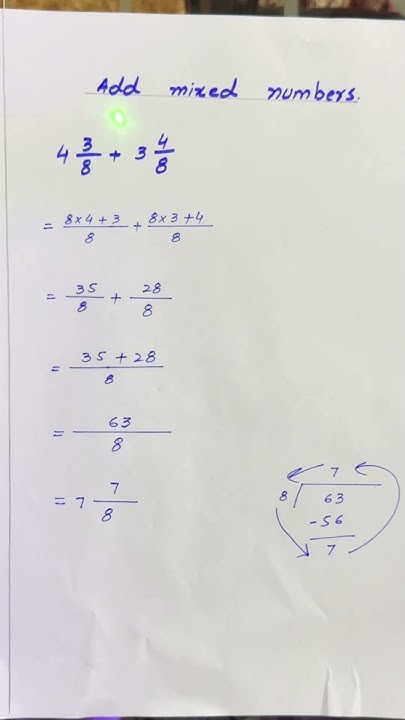 Add mixed numbers.
4 3/8 + 3 4/8
= 8×4+3/8 + 8×3+4/8
= 35/8 + 28/8
= 35+28/8
= 63/8
= 7 7/8
7
8 63
-56
7